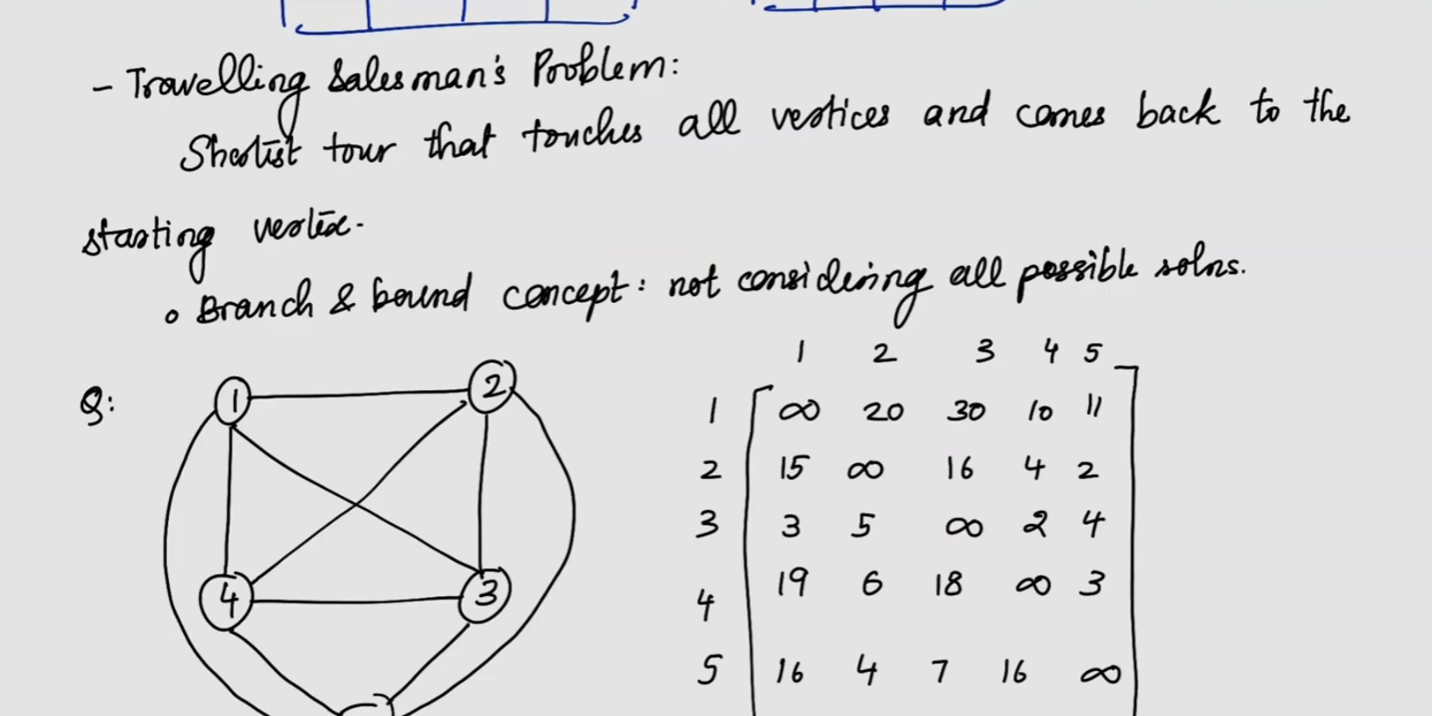 - Travelling Salesman's Problem:
Shortist tour that touches all vertices and comes back to the
starting vertex.
o Branch & bound concept: not considering all possible solns.
1 2 3 4 5
Q: 1 2
1 ∞ 20 30 10 11
2 15 ∞ 16 4 2
3 3 5 ∞ 2 4
4 3
4 19 6 18 ∞ 3
5 16 4 7 16 ∞